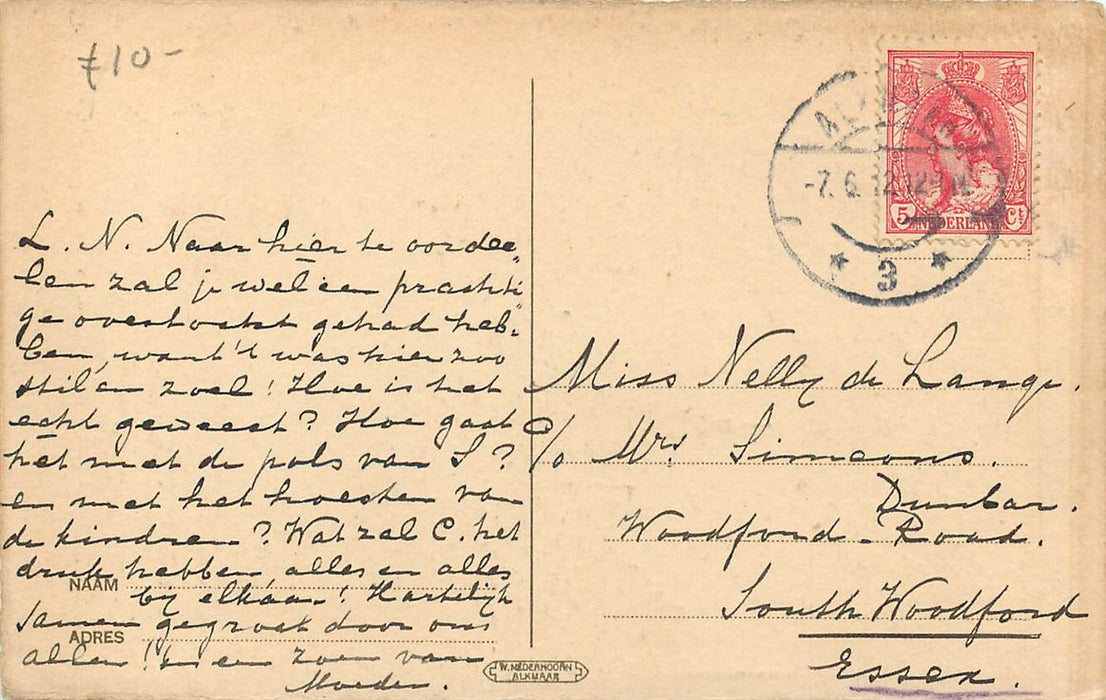 £10-
ALKMAAR
-7.6.12
3
5 Ct
NEDERLAND
L. N. Naar hier te oordee„
len zal je wel een prachti„
ge overtocht gehad heb„
ben, want 't was hier zoo
stil en zoel! Hoe is het
echt geweest? Hoe gaat
het met de pols van S?
en met het hoesten van
de kindren? Wat zal C. het
druk hebben, alles en alles
bij elkaar! Hartelijk
samen gegroet door ons
allen! en een zoen van
Moeder.
NAAM
ADRES
W. NEDERHOORN
ALKMAAR
Miss Nelly de Lange.
c/o Mrs Simeons.
Dunbar.
Woodford-Road.
South Woodford
Essex.